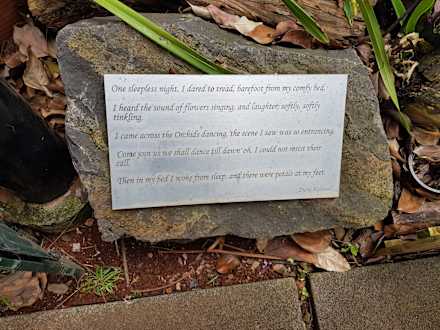 One sleepless night, I dared to tread, barefoot from my comfy bed,
I heard the sound of flowers singing, and laughter, softly, softly
tinkling.
I came across the Orchids dancing, the scene I saw was so entrancing,
Come join us we shall dance till dawn' oh, I could not resist their
call.
Then in my bed I woke from sleep, and there were petals at my feet.